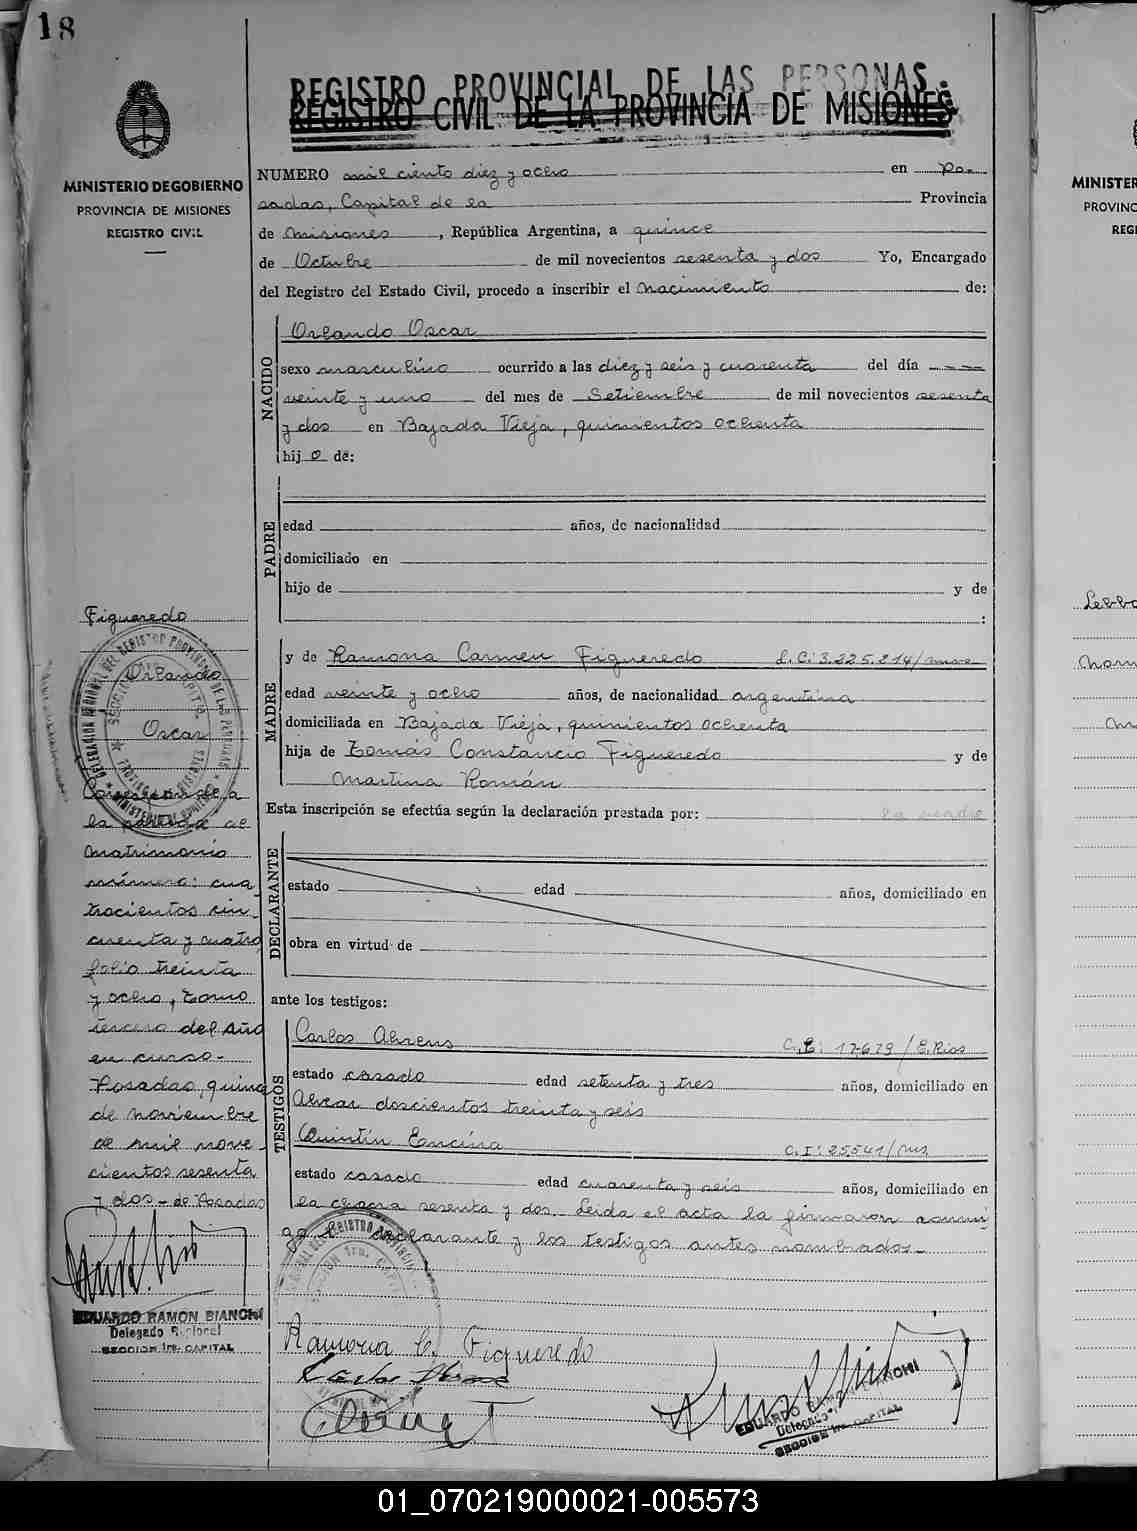 18
MINISTERIO DE GOBIERNO
PROVINCIA DE MISIONES
REGISTRO CIVIL
REGISTRO PROVINCIAL DE LAS PERSONAS
REGISTRO CIVIL DE LA PROVINCIA DE MISIONES
NUMERO mil ciento diez y ocho en Po-
sadas, Capital de la Provincia
de Misiones, República Argentina, a quince
de Octubre de mil novecientos sesenta y dos Yo, Encargado
del Registro del Estado Civil, procedo a inscribir el nacimiento de:
NACIDO
Orlando Oscar
sexo masculino ocurrido a las diez y seis y cuarenta del día
veinte y uno del mes de Setiembre de mil novecientos sesenta
y dos en Bajada Vieja, quinientos ochenta
hijo de:
PADRE
edad años, de nacionalidad
domiciliado en
hijo de y de
:
MADRE
y de Ramona Carmen Figueredo L.C: 3.225.214/
edad veinte y ocho años, de nacionalidad argentina
domiciliada en Bajada Vieja, quinientos ochenta
hija de Tomás Constancio Figueredo y de
Martina Román
Esta inscripción se efectúa según la declaración prestada por: la madre
DECLARANTE
estado edad años, domiciliado en
obra en virtud de
ante los testigos:
TESTIGOS
Carlos Ahrens C.I: 17679/E.Rios
estado casado edad setenta y tres años, domiciliado en
Alvear doscientos treinta y seis
Quintín Encina C.I: 25541/Mnes
estado casado edad cuarenta y seis años, domiciliado en
la chacra sesenta y dos. Leida el acta la firmaron conmi
go el declarante y los testigos antes nombrados.-
Ramona C. Figueredo
EDUARDO RAMON BIANCHI
Delegado
SECCION 1ra. CAPITAL
Figueredo
Orlando
Oscar
Corresponde a
la partida de
matrimonio
número: cua
trocientos cin
cuenta y cuatro
folio treinta
y ocho, tomo
tercero del Año
en curso.-
Posadas, quince
de noviembre
de mil nove-
cientos sesenta
y dos.- de Posadas
EDUARDO RAMON BIANCHI
Delegado Regional
SECCION 1ra. CAPITAL
MINISTER
PROVINC
REG
01_070219000021-005573